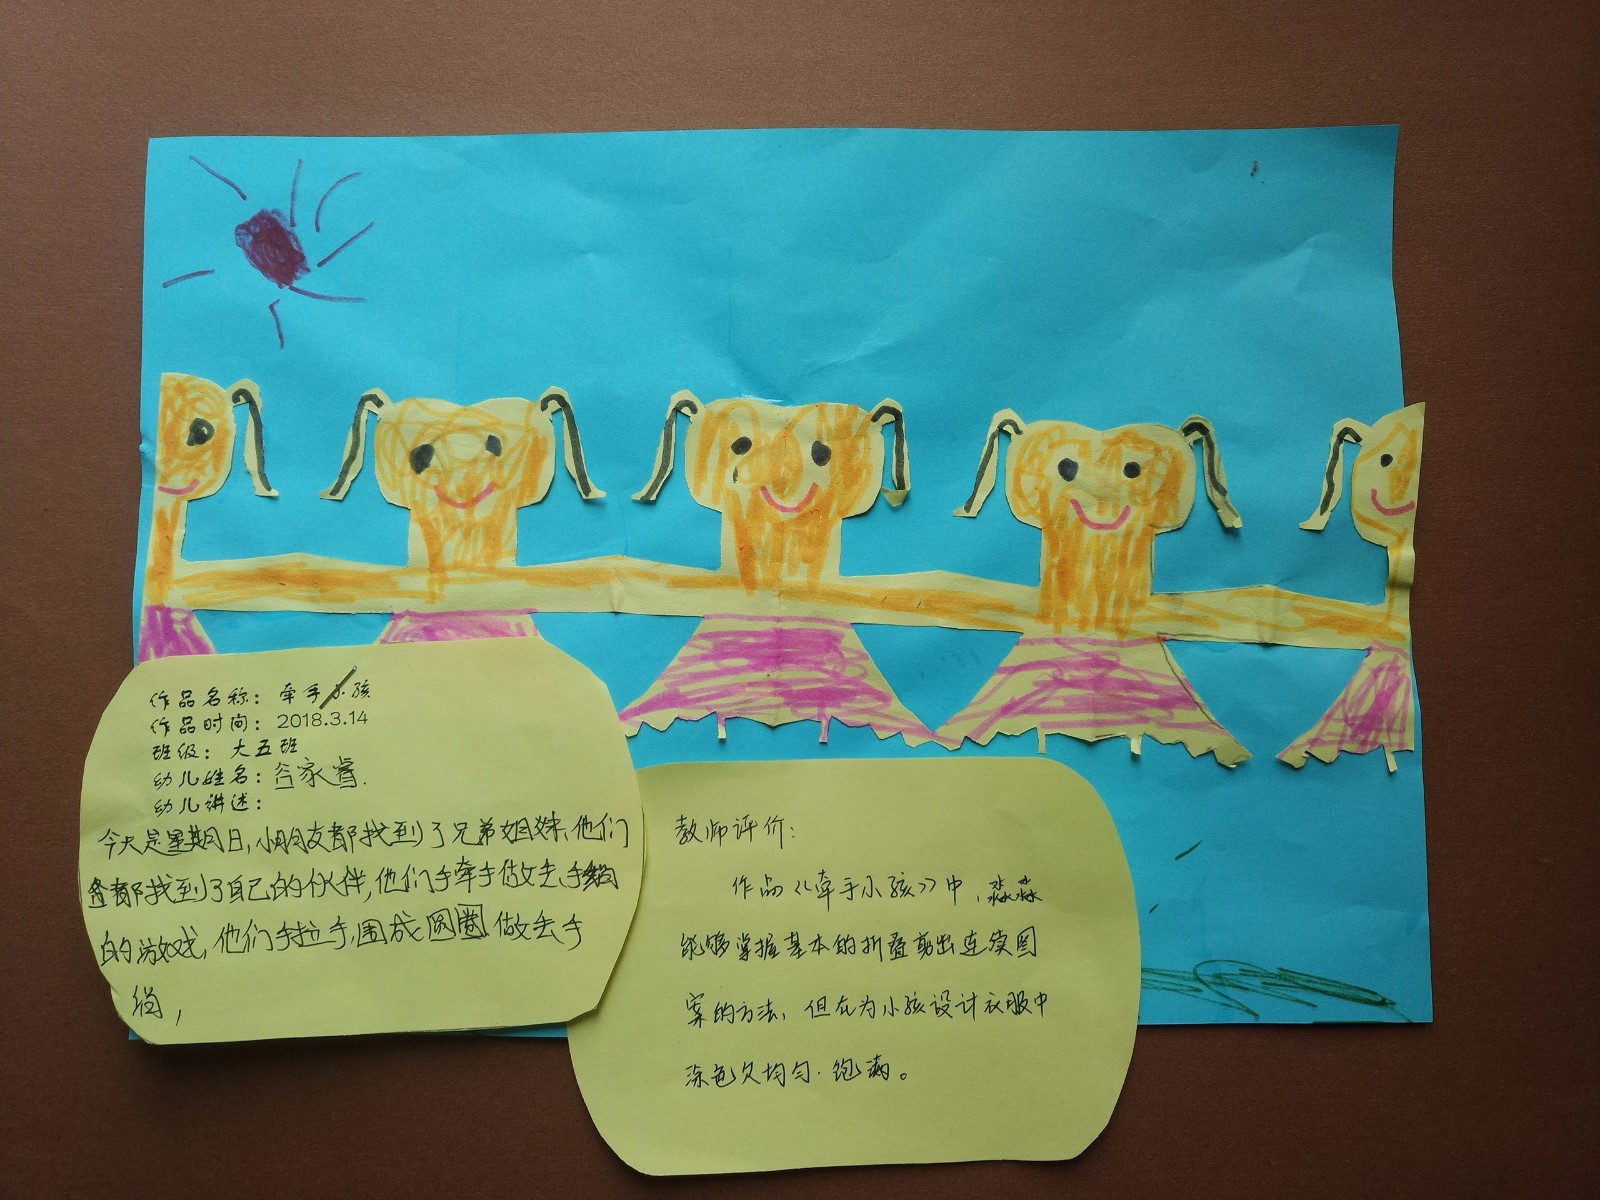 作品名称：牵手小孩
作品时间：2018.3.14
班级：大五班
幼儿姓名：谷家睿.
幼儿讲述：
今天是星期日,小朋友都找到了兄弟姐妹,他们
都找到了自己的伙伴,他们手牵手做丢手绢
的游戏,他们手拉手,围成圆圈做丢手
绢,
教师评价:
作品《牵手小孩》中,淼淼
能够掌握基本的折叠剪出连续图
案的方法,但在为小孩设计衣服中
涂色欠均匀.饱满。